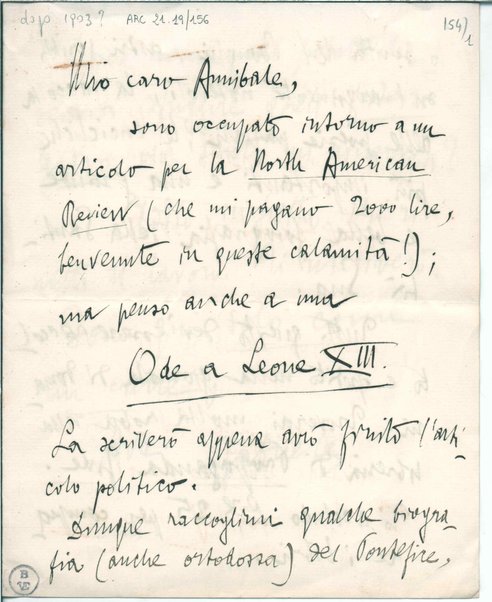 dopo 1903? ARC 21.19/156 154/1
Mio caro Annibale,
sono occupato intorno a un
articolo per la North American
Review (che mi pagano 2000 lire,
benvenute in queste calamità!);
ma penso anche a una
Ode a Leone XIII.
La scriverò appena avrò finito l'arti-
colo politico.
Dunque raccoglimi qualche biogra-
fia (anche ortodossa) del Pontefice,